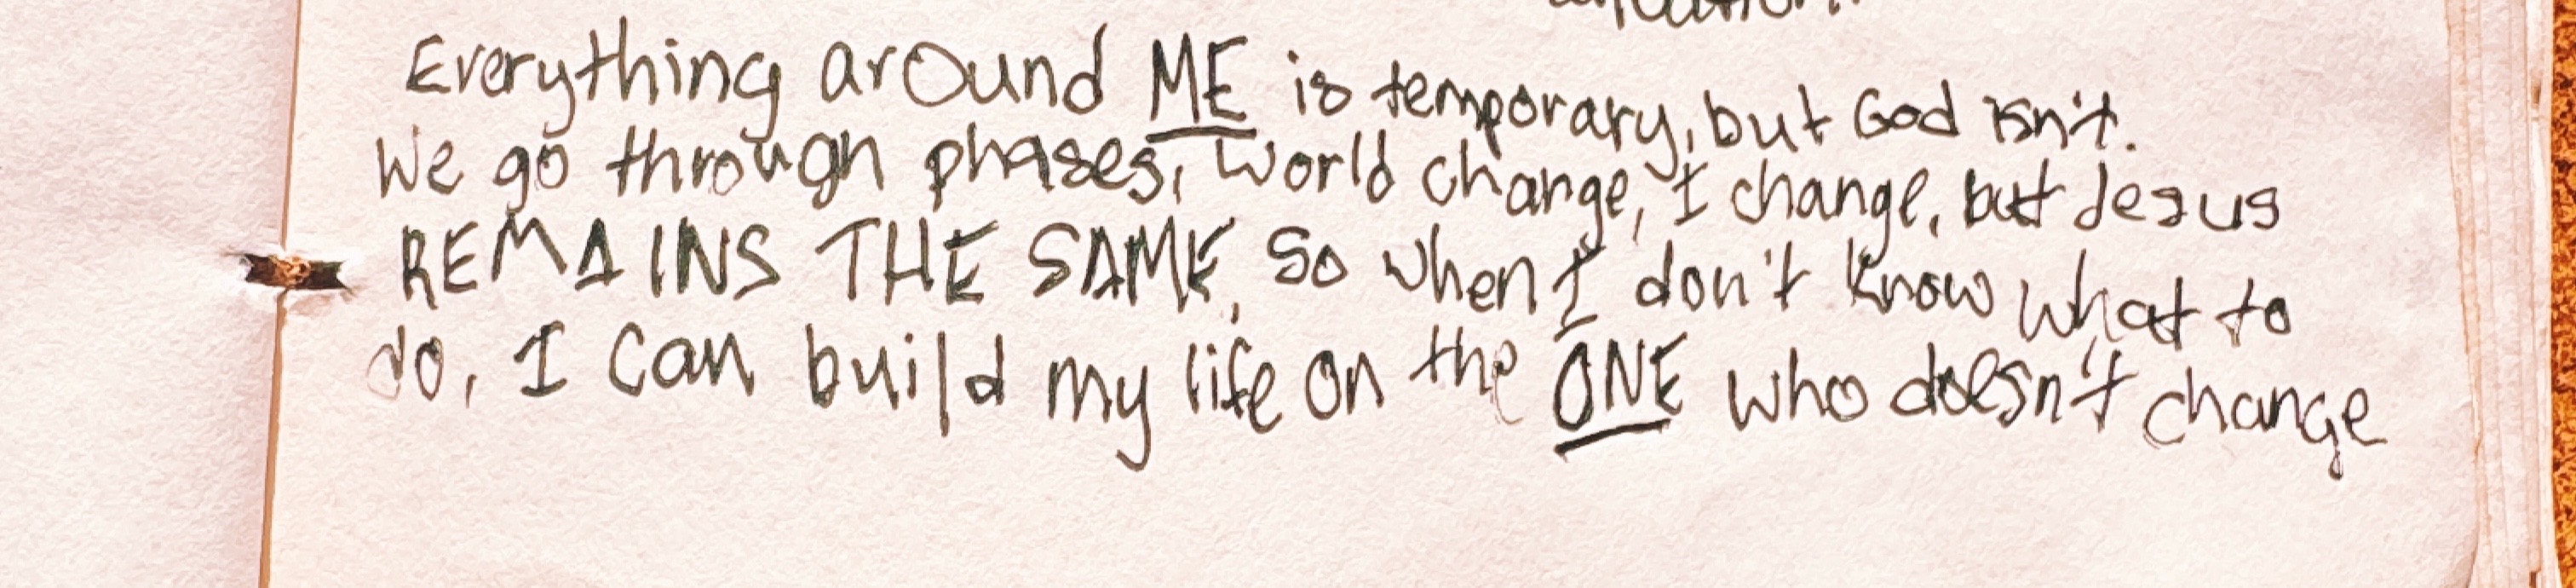 Everything around ME is temporary, but God isn't.
We go through phases, world change, I change, but Jesus
REMAINS THE SAME, so when I don't know what to
do, I can build my life on the ONE who doesn't change